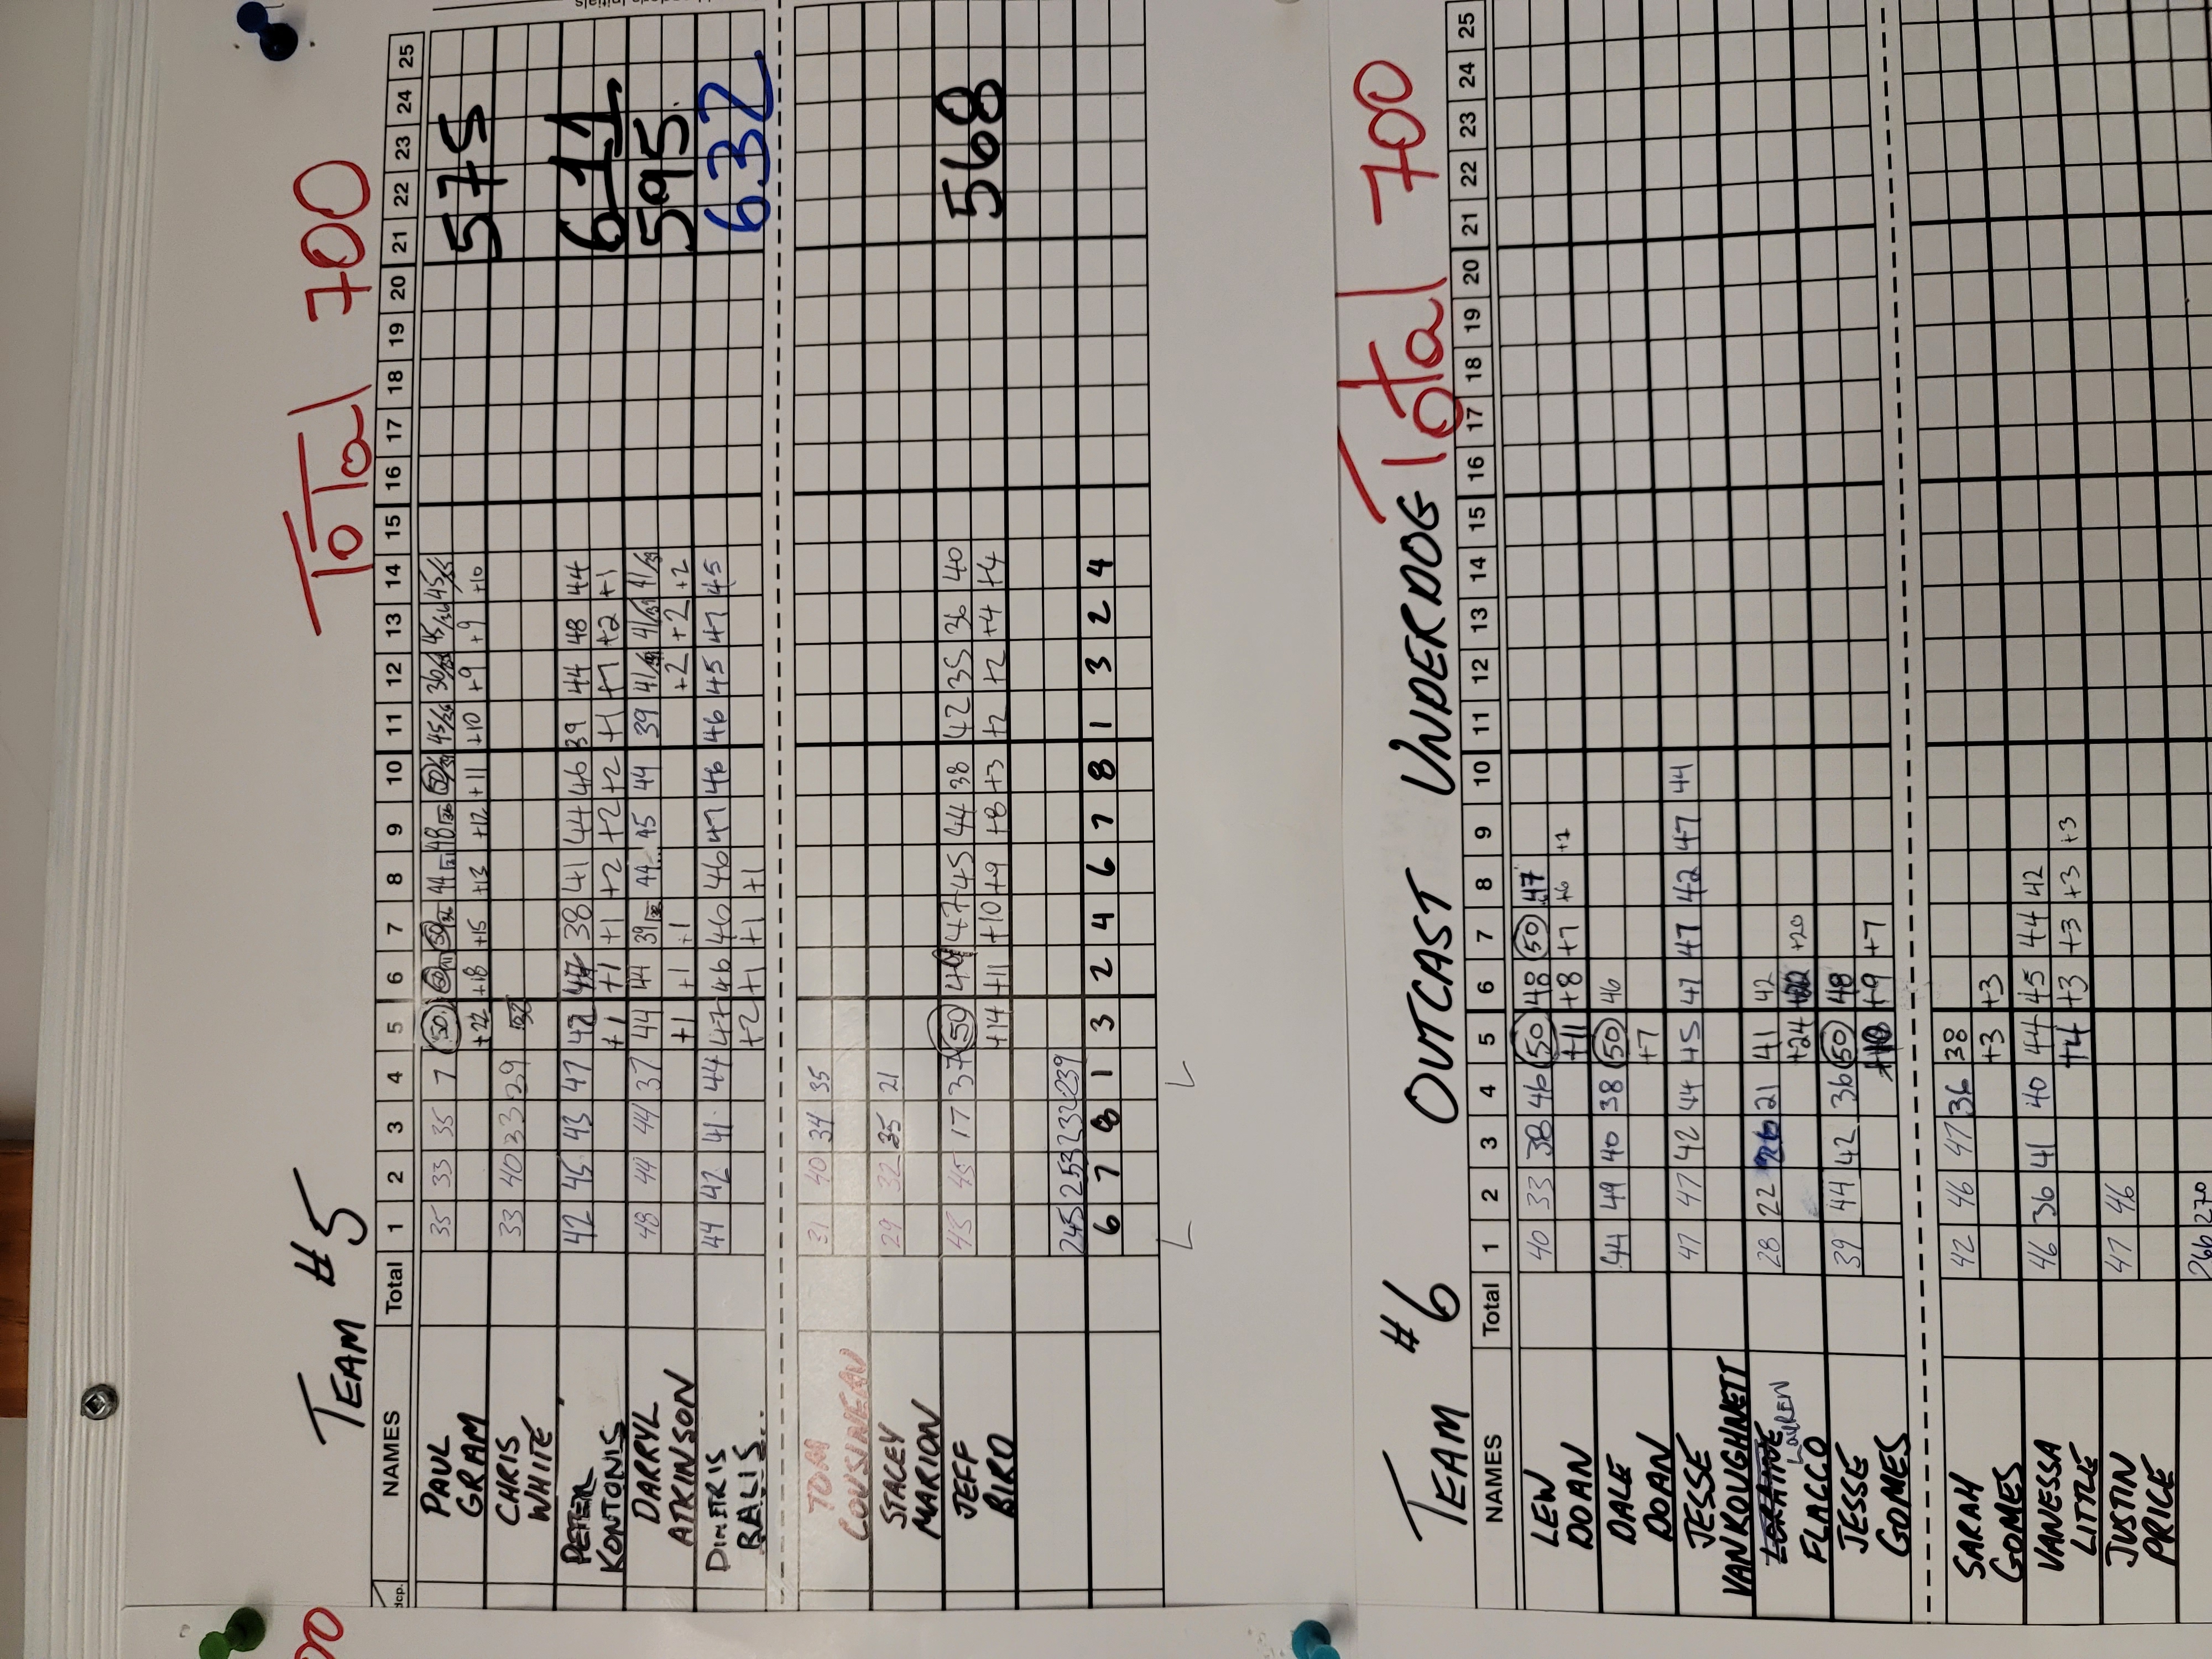 TEAM #5 TOTal 700
NAMES Total 1 2 3 4 5 6 7 8 9 10 11 12 13 14 15 16 17 18 19 20 21 22 23 24 25
PAUL 35 33 35 7 50 50 50 44 48 50 45 36 45 45 575
GRAM +22 +18 +15 +13 +12 +11 +10 +9 +9 +10
CHRIS 33 40 33 29
WHITE
PETER 42 45 43 47 42 47 38 41 44 46 39 44 48 44 611
KONTONIS +1 +1 +1 +2 +2 +2 +1 +1 +2 +1
DARRYL 48 44 44 37 44 44 39 44 45 44 39 41 41 41 595
ATKINSON +1 +1 +1 +2 +2 +2
DIMITRIS 44 42 41 44 47 46 46 46 47 46 46 45 47 45 632
BALIS +2 +1 +1 +1
TOM 31 40 34 35
COUSINEAU
STACEY 29 32 35 21
MARION
JEFF 45 45 17 37 50 49 47 45 44 38 42 35 36 40 568
BIRO +14 +11 +10 +9 +8 +3 +2 +2 +4 +4
245 253 232 239
6 7 8 1 3 2 4 6 7 8 1 3 2 4
L L
TEAM #6 OUTCAST UNDERDOG Total 700
NAMES Total 1 2 3 4 5 6 7 8 9 10 11 12 13 14 15 16 17 18 19 20 21 22 23 24 25
LEW 40 33 38 46 50 48 50 47
DOAN +11 +8 +7 +6 +1
DALE 44 49 40 38 50 46
DOAN +7
JESSE 47 47 42 44 45 47 47 42 47 44
VANKOUGHNETT
LAUREN 28 22 26 21 41 42
FLACCO +24 +20
JESSE 39 44 42 36 50 48
GOMES +9 +7
SARAH 42 46 47 36 38
GOMES +3 +3
VANESSA 46 36 41 40 44 45 44 42
LITTLE +4 +3 +3 +3 +3
JUSTIN 47 46
PRICE
266 270